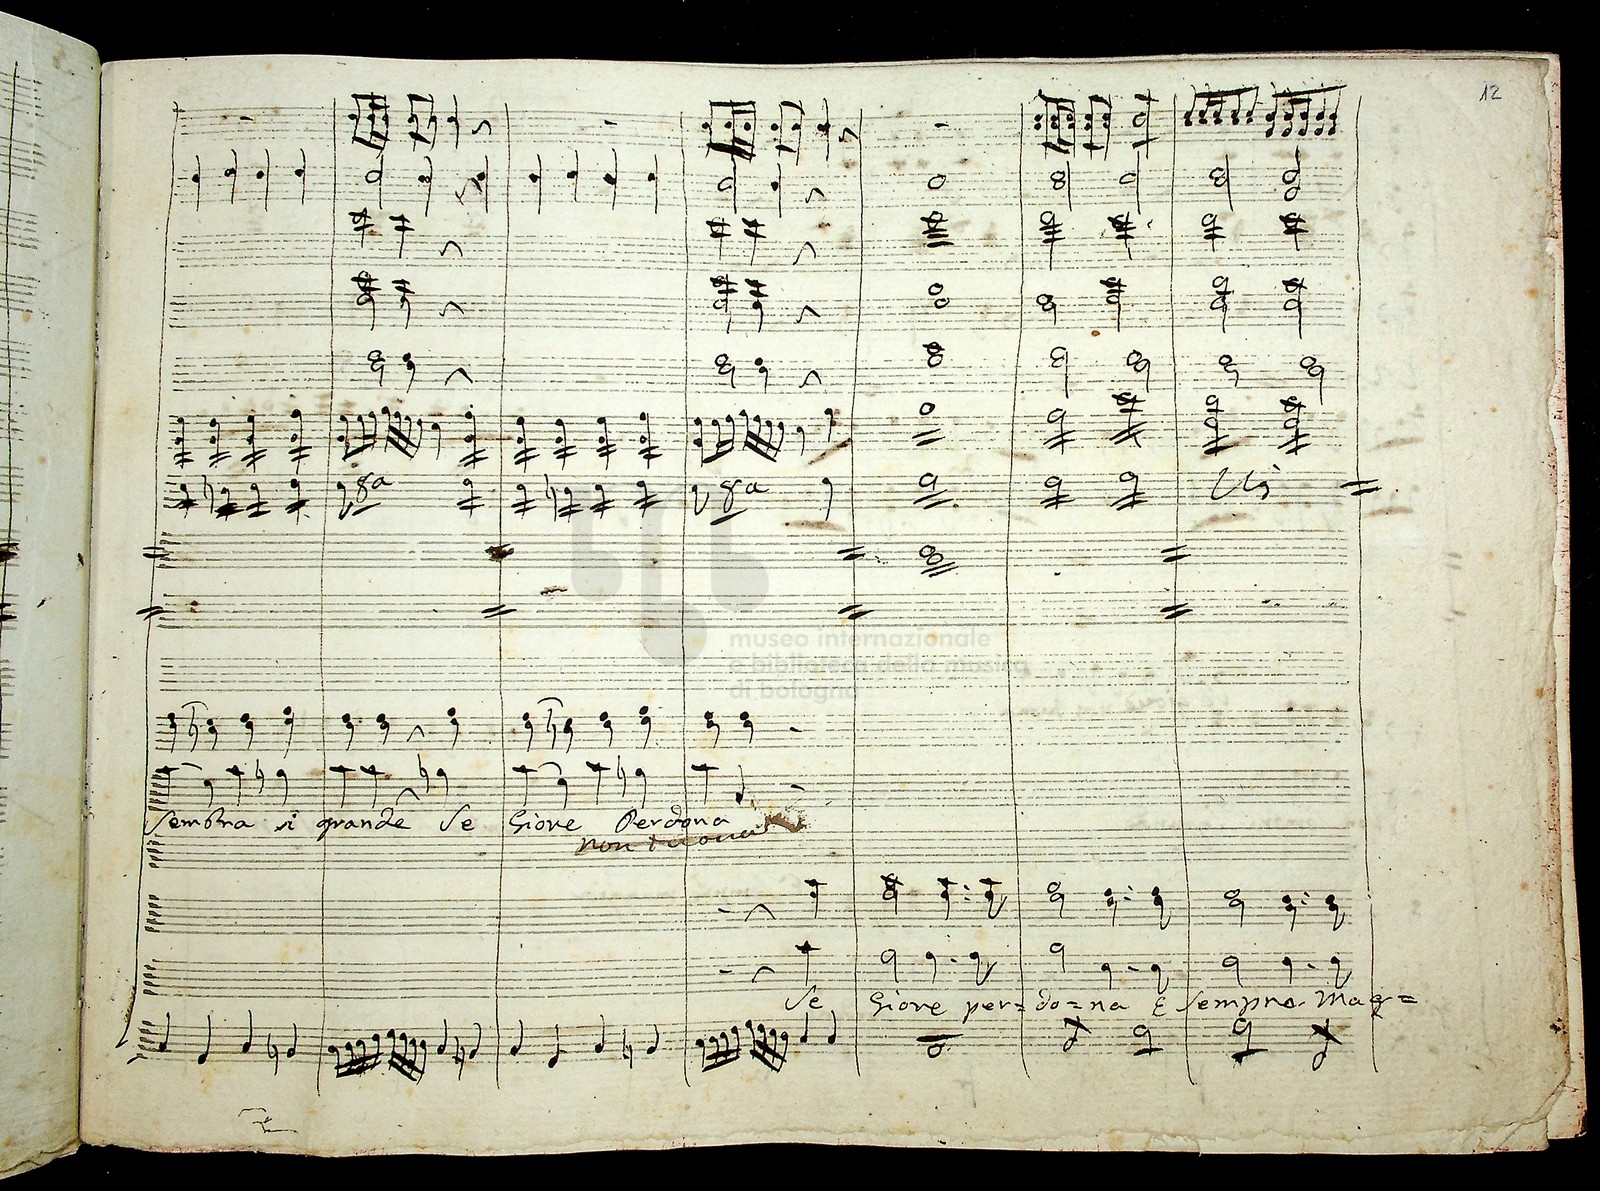 12
8a 8a
Uni
museo internazionale
e biblioteca della musica
di bologna
Sembra si grande Se Giove Perdona
non
Se Giove per= do=na E sempre Mag=